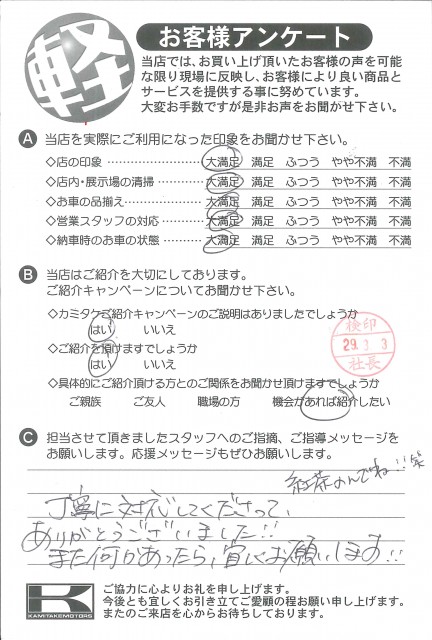 軽
お客様アンケート
当店では、お買い上げ頂いたお客様の声を可能
な限り現場に反映し、お客様により良い商品と
サービスを提供する事に努めています。
大変お手数ですが是非お声をお聞かせ下さい。
A 当店を実際にご利用になった印象をお聞かせ下さい。
◇店の印象 大満足 満足 ふつう やや不満 不満
◇店内・展示場の清掃 大満足 満足 ふつう やや不満 不満
◇お車の品揃え 大満足 満足 ふつう やや不満 不満
◇営業スタッフの対応 大満足 満足 ふつう やや不満 不満
◇納車時のお車の状態 大満足 満足 ふつう やや不満 不満
B 当店はご紹介を大切にしております。
ご紹介キャンペーンについてお聞かせ下さい。
◇カミタケご紹介キャンペーンのご説明はありましたでしょうか
はい いいえ
◇ご紹介を頂けますでしょうか
はい いいえ
検印
29.3.3
社長
◇具体的にご紹介頂ける方とのご関係をお聞かせ頂けますでしょうか
ご親族 ご友人 職場の方 機会があれば紹介したい
C 担当させて頂きましたスタッフへのご指摘、ご指導メッセージを
お願いします。応援メッセージもぜひお願いします。
紅茶のんでね!!笑
丁寧に対応してくださって、
ありがとうございました!!
また何かあったら、宜しくお願いします!!
K
KAMITAKEMOTORS
ご協力に心よりお礼を申し上げます。
今後とも宜しくお引き立てご愛顧の程お願い申し上げます。
またのご来店を心からお待ちしております。